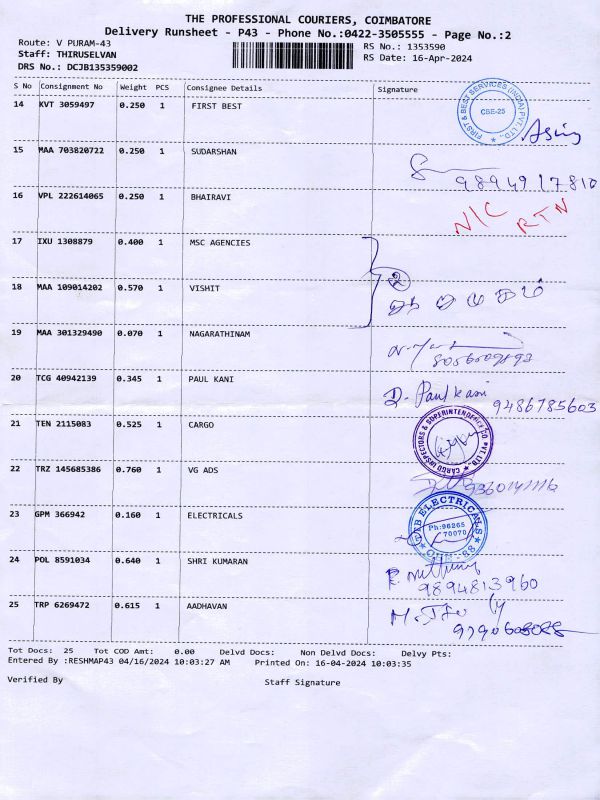 THE PROFESSIONAL COURIERS, COIMBATORE
Delivery Runsheet - P43 - Phone No.:0422-3505555 - Page No.:2
Route: V PURAM-43
RS No.: 1353590
Staff: THIRUSELVAN
RS Date: 16-Apr-2024
DRS No.: DCJB135359002
S No Consignment No Weight PCS Consignee Details Signature
14 KVT 3059497 0.250 1 FIRST BEST
FIRST & BEST SERVICES (INDIA) PVT. LTD.
CBE-25
15 MAA 703820722 0.250 1 SUDARSHAN
9894917810
16 VPL 222614065 0.250 1 BHAIRAVI N/C RTN
17 IXU 1308879 0.400 1 MSC AGENCIES
2
18 MAA 109014202 0.570 1 VISHIT
19 MAA 301329490 0.070 1 NAGARATHINAM
20 TCG 40942139 0.345 1 PAUL KANI D. Paulkani 9486785603
21 TEN 2115083 0.525 1 CARGO
CARGO INSPECTORS & SUPERINTENDENCE CO. PVT. LTD.
22 TRZ 145685386 0.760 1 VG ADS
23 GPM 366942 0.160 1 ELECTRICALS
ELECTRICALS
Ph:96265
70070
24 POL 8591034 0.640 1 SHRI KUMARAN
9894813960
25 TRP 6269472 0.615 1 AADHAVAN
Tot Docs: 25 Tot COD Amt: 0.00 Delvd Docs: Non Delvd Docs: Delvy Pts:
Entered By :RESHMAP43 04/16/2024 10:03:27 AM Printed On: 16-04-2024 10:03:35
Verified By Staff Signature